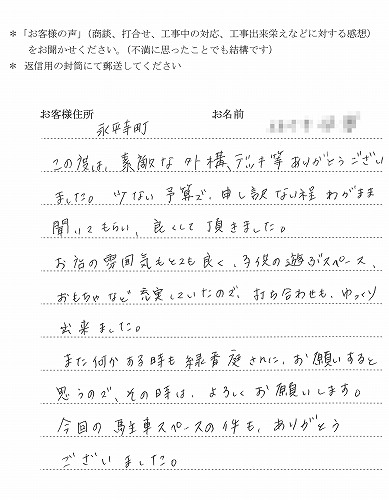 ＊「お客様の声」（商談、打合せ、工事中の対応、工事出来栄えなどに対する感想）
をお聞かせください。（不満に思ったことでも結構です）
＊ 返信用の封筒にて郵送してください
お客様住所 お名前
永平寺町
この度は、素敵な外構、デッキ等ありがとうござい
ました。少ない予算で、申し訳ない程わがまま
聞いてもらい、良くして頂きました。
お店の雰囲気もとても良く、子供の遊ぶスペース、
おもちゃなど充実していたので、打ち合わせも、ゆっくり
出来ました。
また何かある時も緑香庭さんに、お願いすると
思うので、その時は、よろしくお願いします。
今回の駐車スペースの件も、ありがとう
ございました。